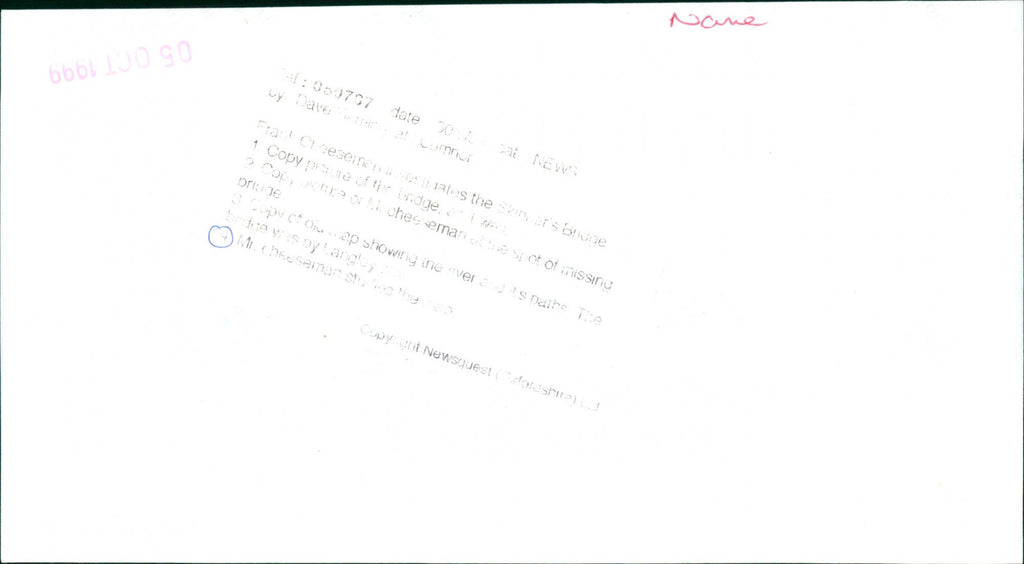 Name
05 OCT 1999
date
by Dave at Cumnor NEWS
Frank Cheeseman investigates the Skinner's Bridge
1 Copy picture of the bridge, as it was.
2 Copy picture of Mr cheeseman at the spot of missing
bridge
3 Copy of old map showing the river and its paths. The
bridge was by Langley
4 Mr. cheeseman studies the map
Copyright Newsquest (Oxfordshire) Ltd